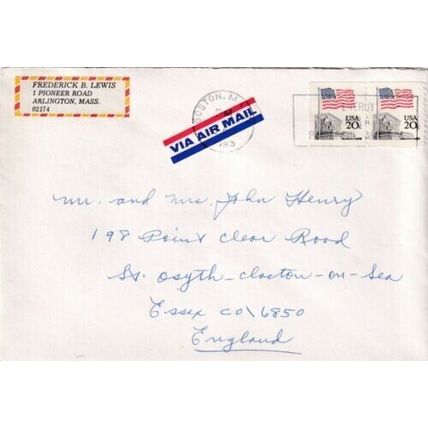 FREDERICK B. LEWIS
1 PIONEER ROAD
ARLINGTON, MASS.
02174
BOSTON, M
VIA AIR MAIL
ENERGY
USA
20c
USA
20c
Mr. and Mrs. John Henry
198 Point Clear Road
St. Osyth-Clacton-on-Sea
Essex CO\6850
England